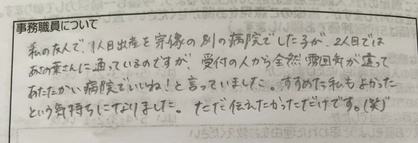 事務職員について
私の友人で、1人目出産を宗像の別の病院でした子が、2人目では
あさの葉さんに通っているのですが、受付の人から全然雰囲気が違って
あたたかい病院でいいね！と言っていました。すすめた私もよかった
という気持ちになりました。ただ伝えたかっただけです。(笑)